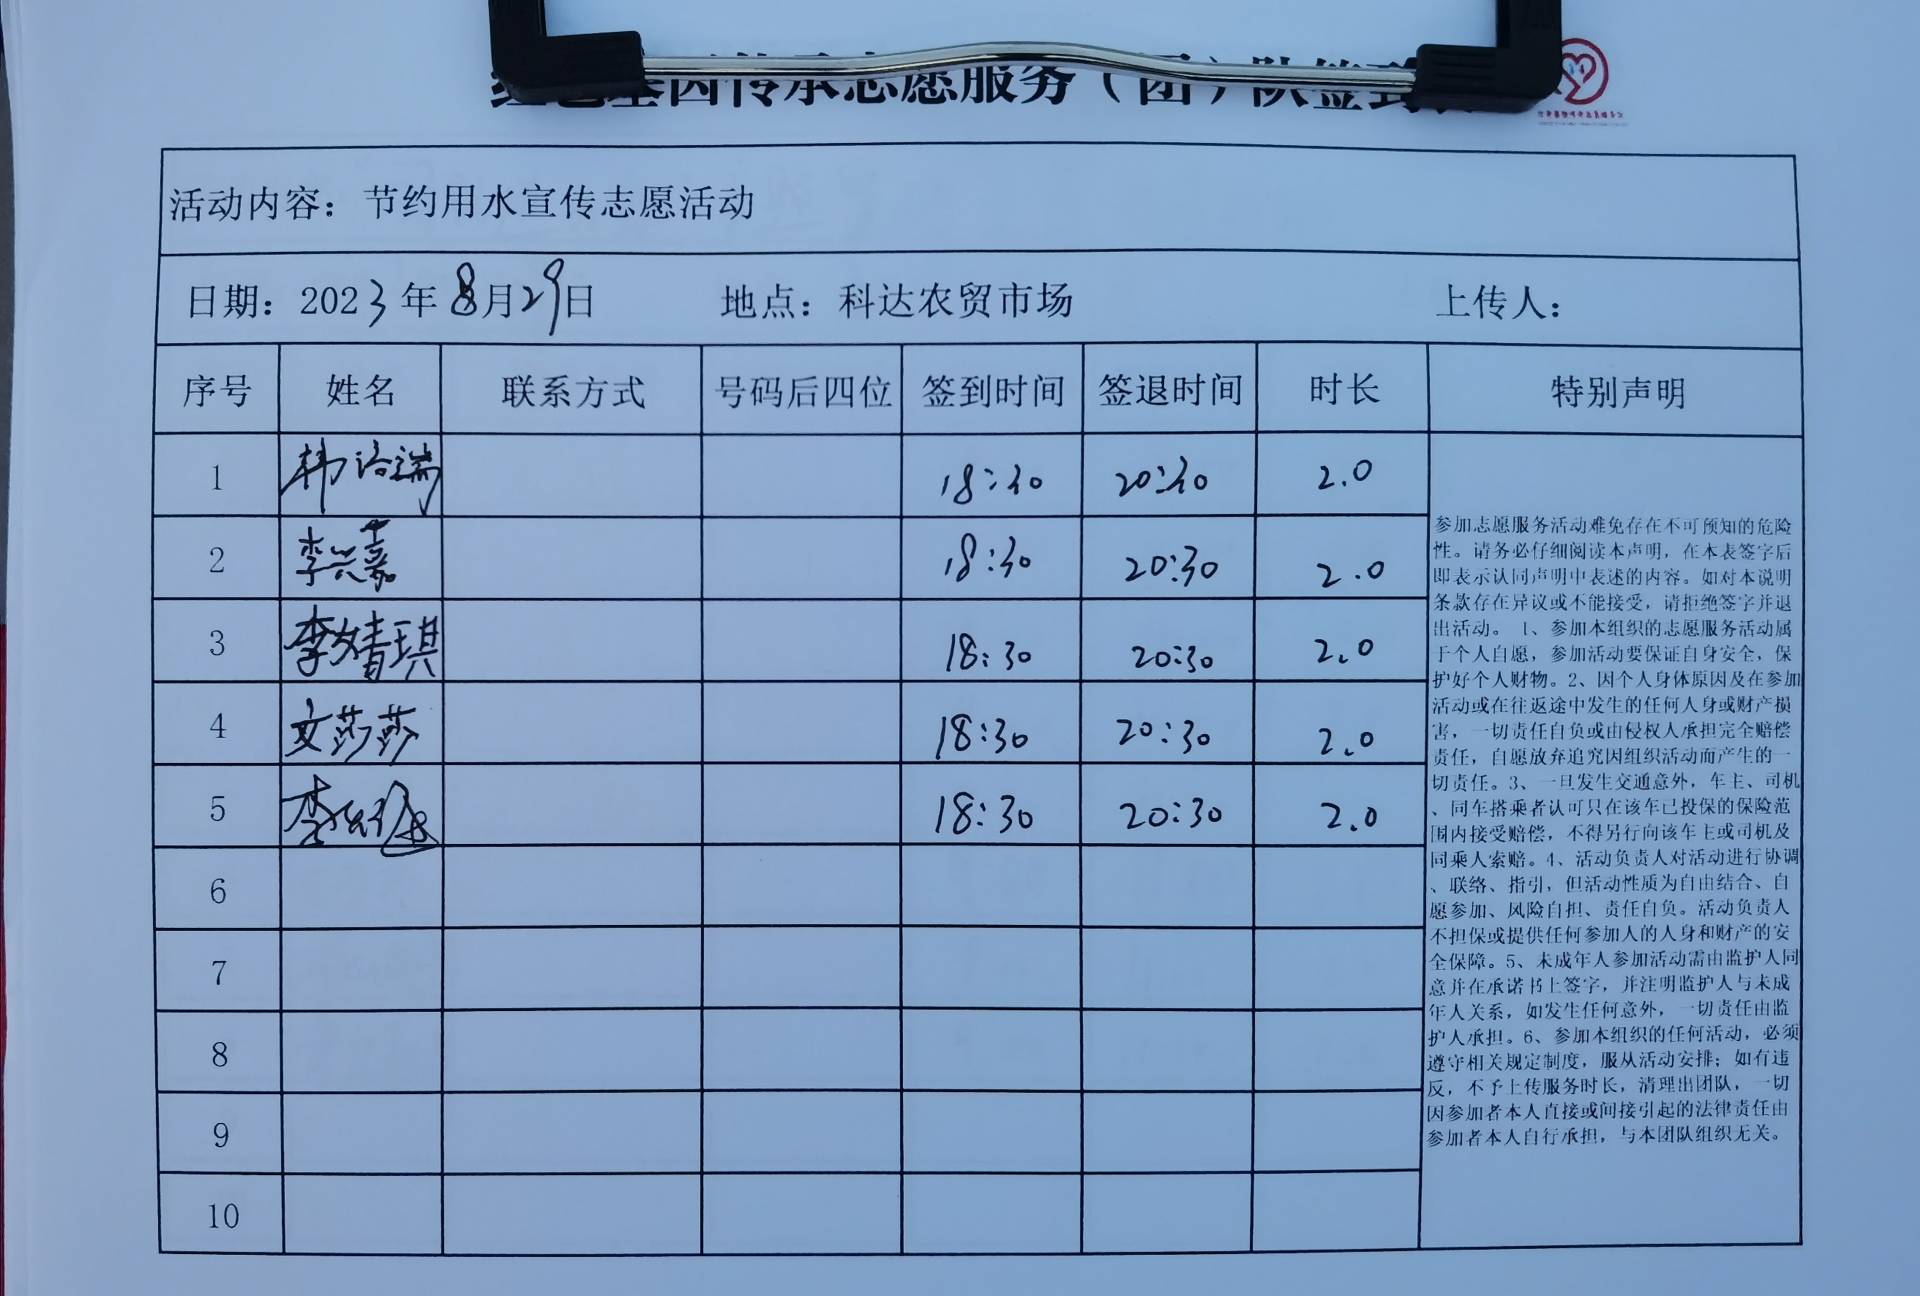 基因传承志愿服务（团）队签到
活动内容：节约用水宣传志愿活动
日期：2023年8月29日 地点：科达农贸市场 上传人：
序号 姓名 联系方式 号码后四位 签到时间 签退时间 时长 特别声明
1 18:30 20:30 2.0
2 18:30 20:30 2.0
3 李婧琪 18:30 20:30 2.0
4 文莎莎 18:30 20:30 2.0
5 18:30 20:30 2.0
6
7
8
9
10
参加志愿服务活动难免存在不可预知的危险
性。请务必仔细阅读本声明，在本表签字后
即表示认同声明中表述的内容。如对本说明
条款存在异议或不能接受，请拒绝签字并退
出活动。 1、参加本组织的志愿服务活动属
于个人自愿，参加活动要保证自身安全，保
护好个人财物。2、因个人身体原因及在参加
活动或在往返途中发生的任何人身或财产损
害，一切责任自负或由侵权人承担完全赔偿
责任，自愿放弃追究因组织活动而产生的一
切责任。3、一旦发生交通意外，车主、司机
、同车搭乘者认可只在该车已投保的保险范
围内接受赔偿，不得另行向该车主或司机及
同乘人索赔。4、活动负责人对活动进行协调
、联络、指引，但活动性质为自由结合、自
愿参加、风险自担、责任自负。活动负责人
不担保或提供任何参加人的人身和财产的安
全保障。5、未成年人参加活动需由监护人同
意并在承诺书上签字，并注明监护人与未成
年人关系，如发生任何意外，一切责任由监
护人承担。6、参加本组织的任何活动，必须
遵守相关规定制度，服从活动安排；如有违
反，不予上传服务时长，清理出团队，一切
因参加者本人直接或间接引起的法律责任由
参加者本人自行承担，与本团队组织无关。